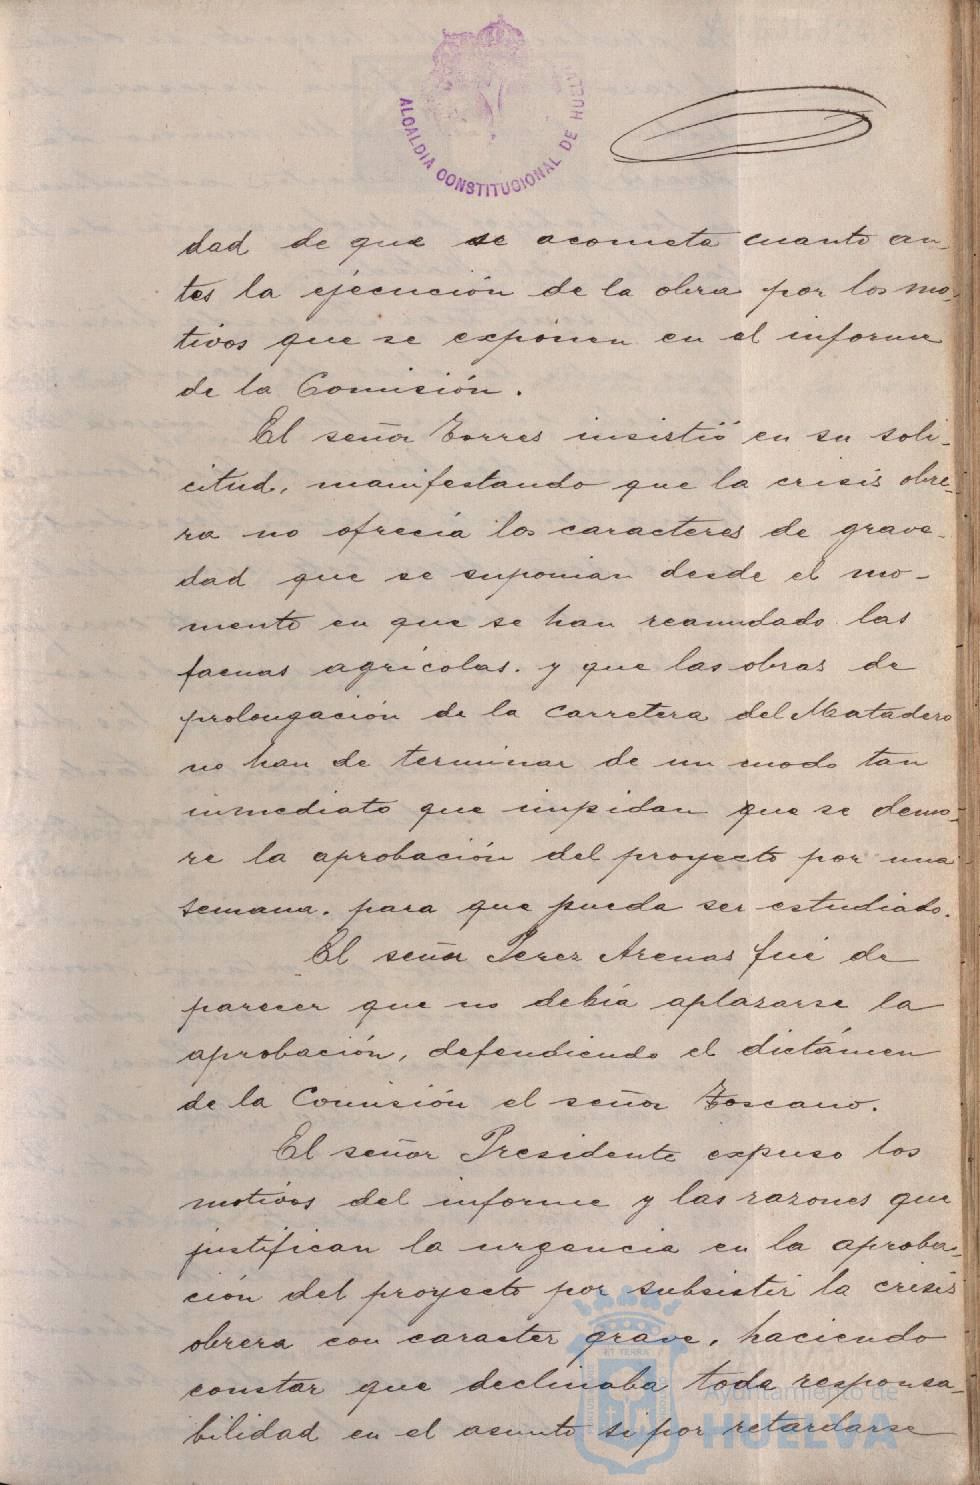 ALCALDIA CONSTITUCIONAL DE HUELVA
dad de que se acometa cuanto an-
tes la ejecución de la obra por los mo-
tivos que se exponen en el informe
de la Comisión.
El señor Torres insistió en su soli-
citud, manifestando que la crisis obre-
ra no ofrecía los caracteres de grave-
dad que se suponian desde el mo-
mento en que se han reanudado las
faenas agrícolas. y que las obras de
prolongación de la carretera del Matadero
no han de terminar de un modo tan
inmediato que impidan que se demo-
re la aprobación del proyecto por una
semana. para que pueda ser estudiado.
El señor Perez Arenas fué de
parecer que no debía aplazarse la
aprobación, defendiendo el dictámen
de la Comisión el señor Toscano.
El señor Presidente expuso los
motivos del informe y las razones que
justifican la urgencia en la aproba-
ción del proyecto por subsistir la crisis
obrera con caracter grave, haciendo
constar que declinaba toda responsa-
bilidad en el asunto si por retardarse
Ayuntamiento de
HUELVA